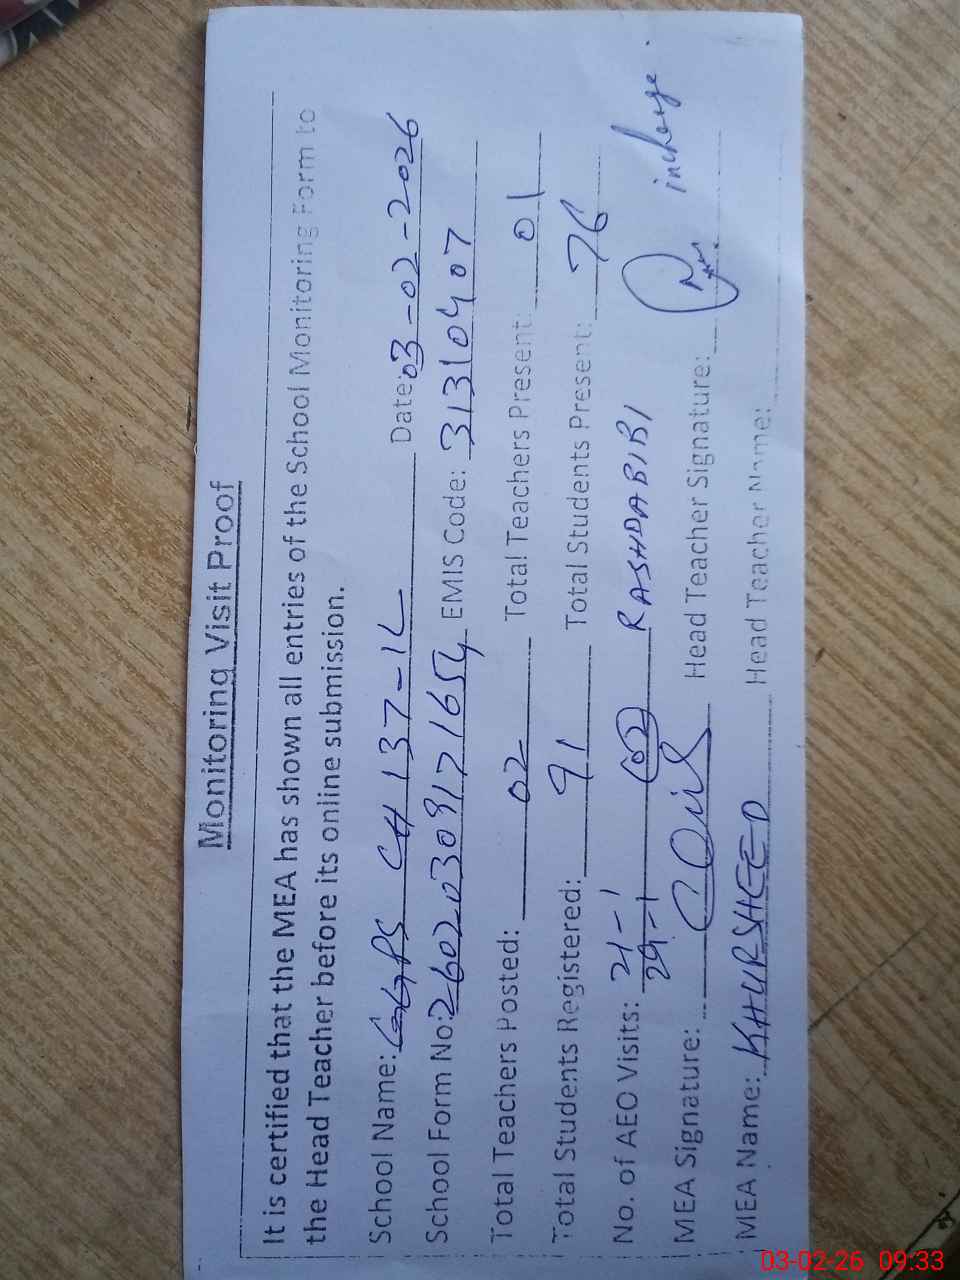 Monitoring Visit Proof
It is certified that the MEA has shown all entries of the School Monitoring Form to
the Head Teacher before its online submission.
School Name: GGPS CH 137-1L Date: 03-02-2026
School Form No: 26020309171654 EMIS Code: 31310407
Total Teachers Posted: 02 Total Teachers Present: 01
Total Students Registered: 91 Total Students Present: 76
No. of AEO Visits: 21-1 29-1 02 RASHDABIBI
MEA Signature: Head Teacher Signature: incharge
MEA Name: KHURSHEED Head Teacher Name:
03-02-26 09:33